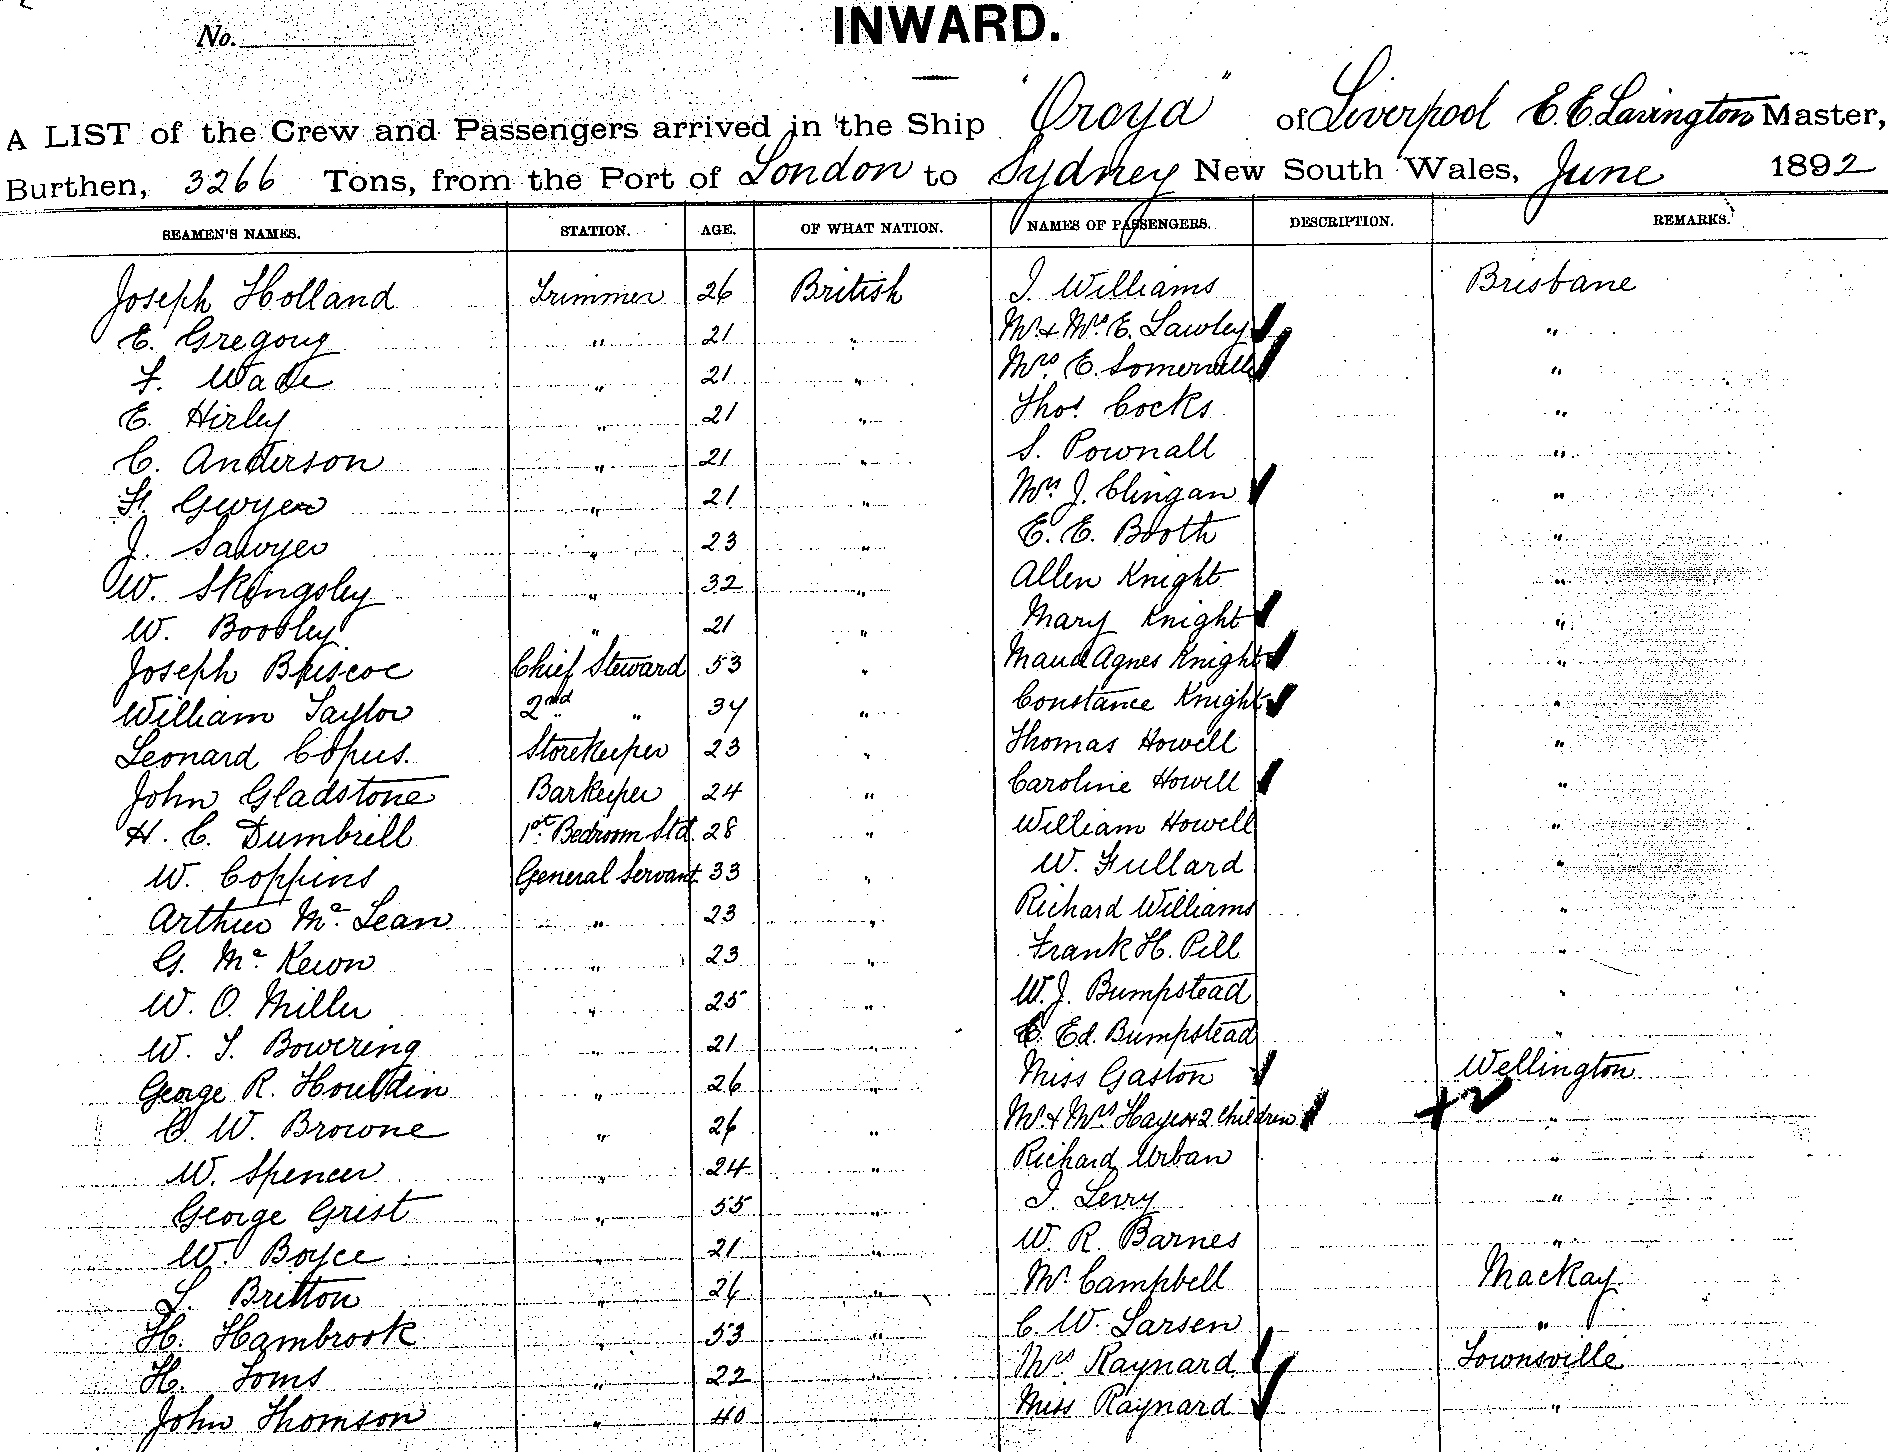 No.
INWARD.
A LIST of the Crew and Passengers arrived in the Ship "Oroya" of Liverpool E. E. Lavington Master,
Burthen, 3266 Tons, from the Port of London to Sydney New South Wales, June 1892
SEAMEN'S NAMES. STATION. AGE. OF WHAT NATION. NAMES OF PASSENGERS. DESCRIPTION. REMARKS.
Joseph Holland Trimmer 26 British J. Williams Brisbane
E. Gregory " 21 " Mr. & Mrs. E. Lawley "
F. Wade " 21 " Mrs. E. Somerville "
E. Hirley " 21 " Thos. Cocks "
C. Anderson " 21 " S. Pownall "
H. Gwyer " 21 " Mrs J. Clingan "
J. Sawyer " 23 " E. E. Booth "
W. Skingsley " 32 " Allen Knight "
W. Boobley " 21 " Mary Knight "
Joseph Briscoe Chief Steward 53 " Maud Agnes Knight "
William Taylor 2nd " 34 " Constance Knight "
Leonard Copus. Storekeeper 23 " Thomas Howell "
John Gladstone Barkeeper 24 " Caroline Howell "
H. C. Dumbrill 1st Bedroom Std. 28 " William Howell "
W. Coppins General Servant 33 " W. Fullard "
Arthur Mc. Lean " 23 " Richard Williams "
G. Mc. Keown " 23 " Frank H. Pill "
W. O. Miller " 25 " W. J. Bumpstead "
W. T. Bowering " 21 " E. Ed. Bumpstead "
George R. Houldin " 26 " Miss Gaston Wellington
C. W. Browne " 26 " Mr. & Mrs Hayes & 2 children "
W. Spencer " 24 " Richard Urban "
George Grist " 55 " J. Levy "
W. Boyce " 21 " W. R. Barnes "
L. Britton " 26 " Mr. Campbell Mackay
H. Hambrook " 53 " C. W. Larsen "
H. Toms " 22 " Mrs Raynard Townsville
John Thomson " 40 " Miss Raynard "